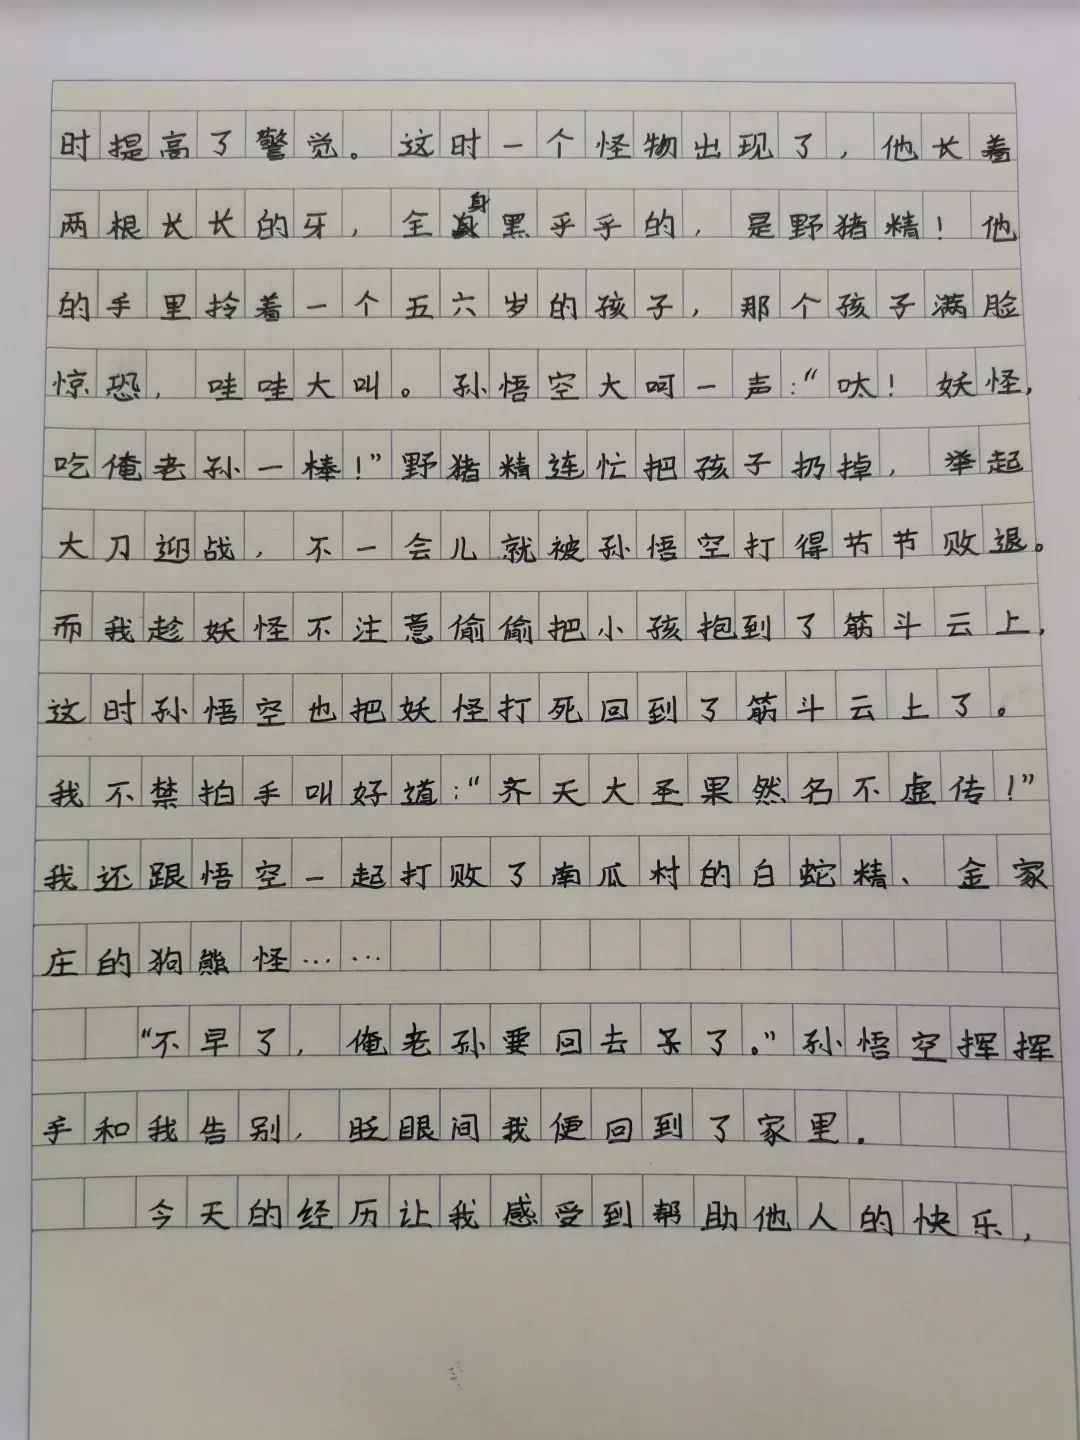 时提高了警觉。这时一个怪物出现了，他长着
两根长长的牙，全身黑乎乎的，是野猪精！他
的手里拎着一个五六岁的孩子，那个孩子满脸
惊恐，哇哇大叫。孙悟空大呵一声：“呔！妖怪，
吃俺老孙一棒！”野猪精连忙把孩子扔掉，举起
大刀迎战，不一会儿就被孙悟空打得节节败退。
而我趁妖怪不注意偷偷把小孩抱到了筋斗云上，
这时孙悟空也把妖怪打死回到了筋斗云上了。
我不禁拍手叫好道：“齐天大圣果然名不虚传！”
我还跟悟空一起打败了南瓜村的白蛇精、金家
庄的狗熊怪……
“不早了，俺老孙要回去了。”孙悟空挥挥
手和我告别，眨眼间我便回到了家里。
今天的经历让我感受到帮助他人的快乐，